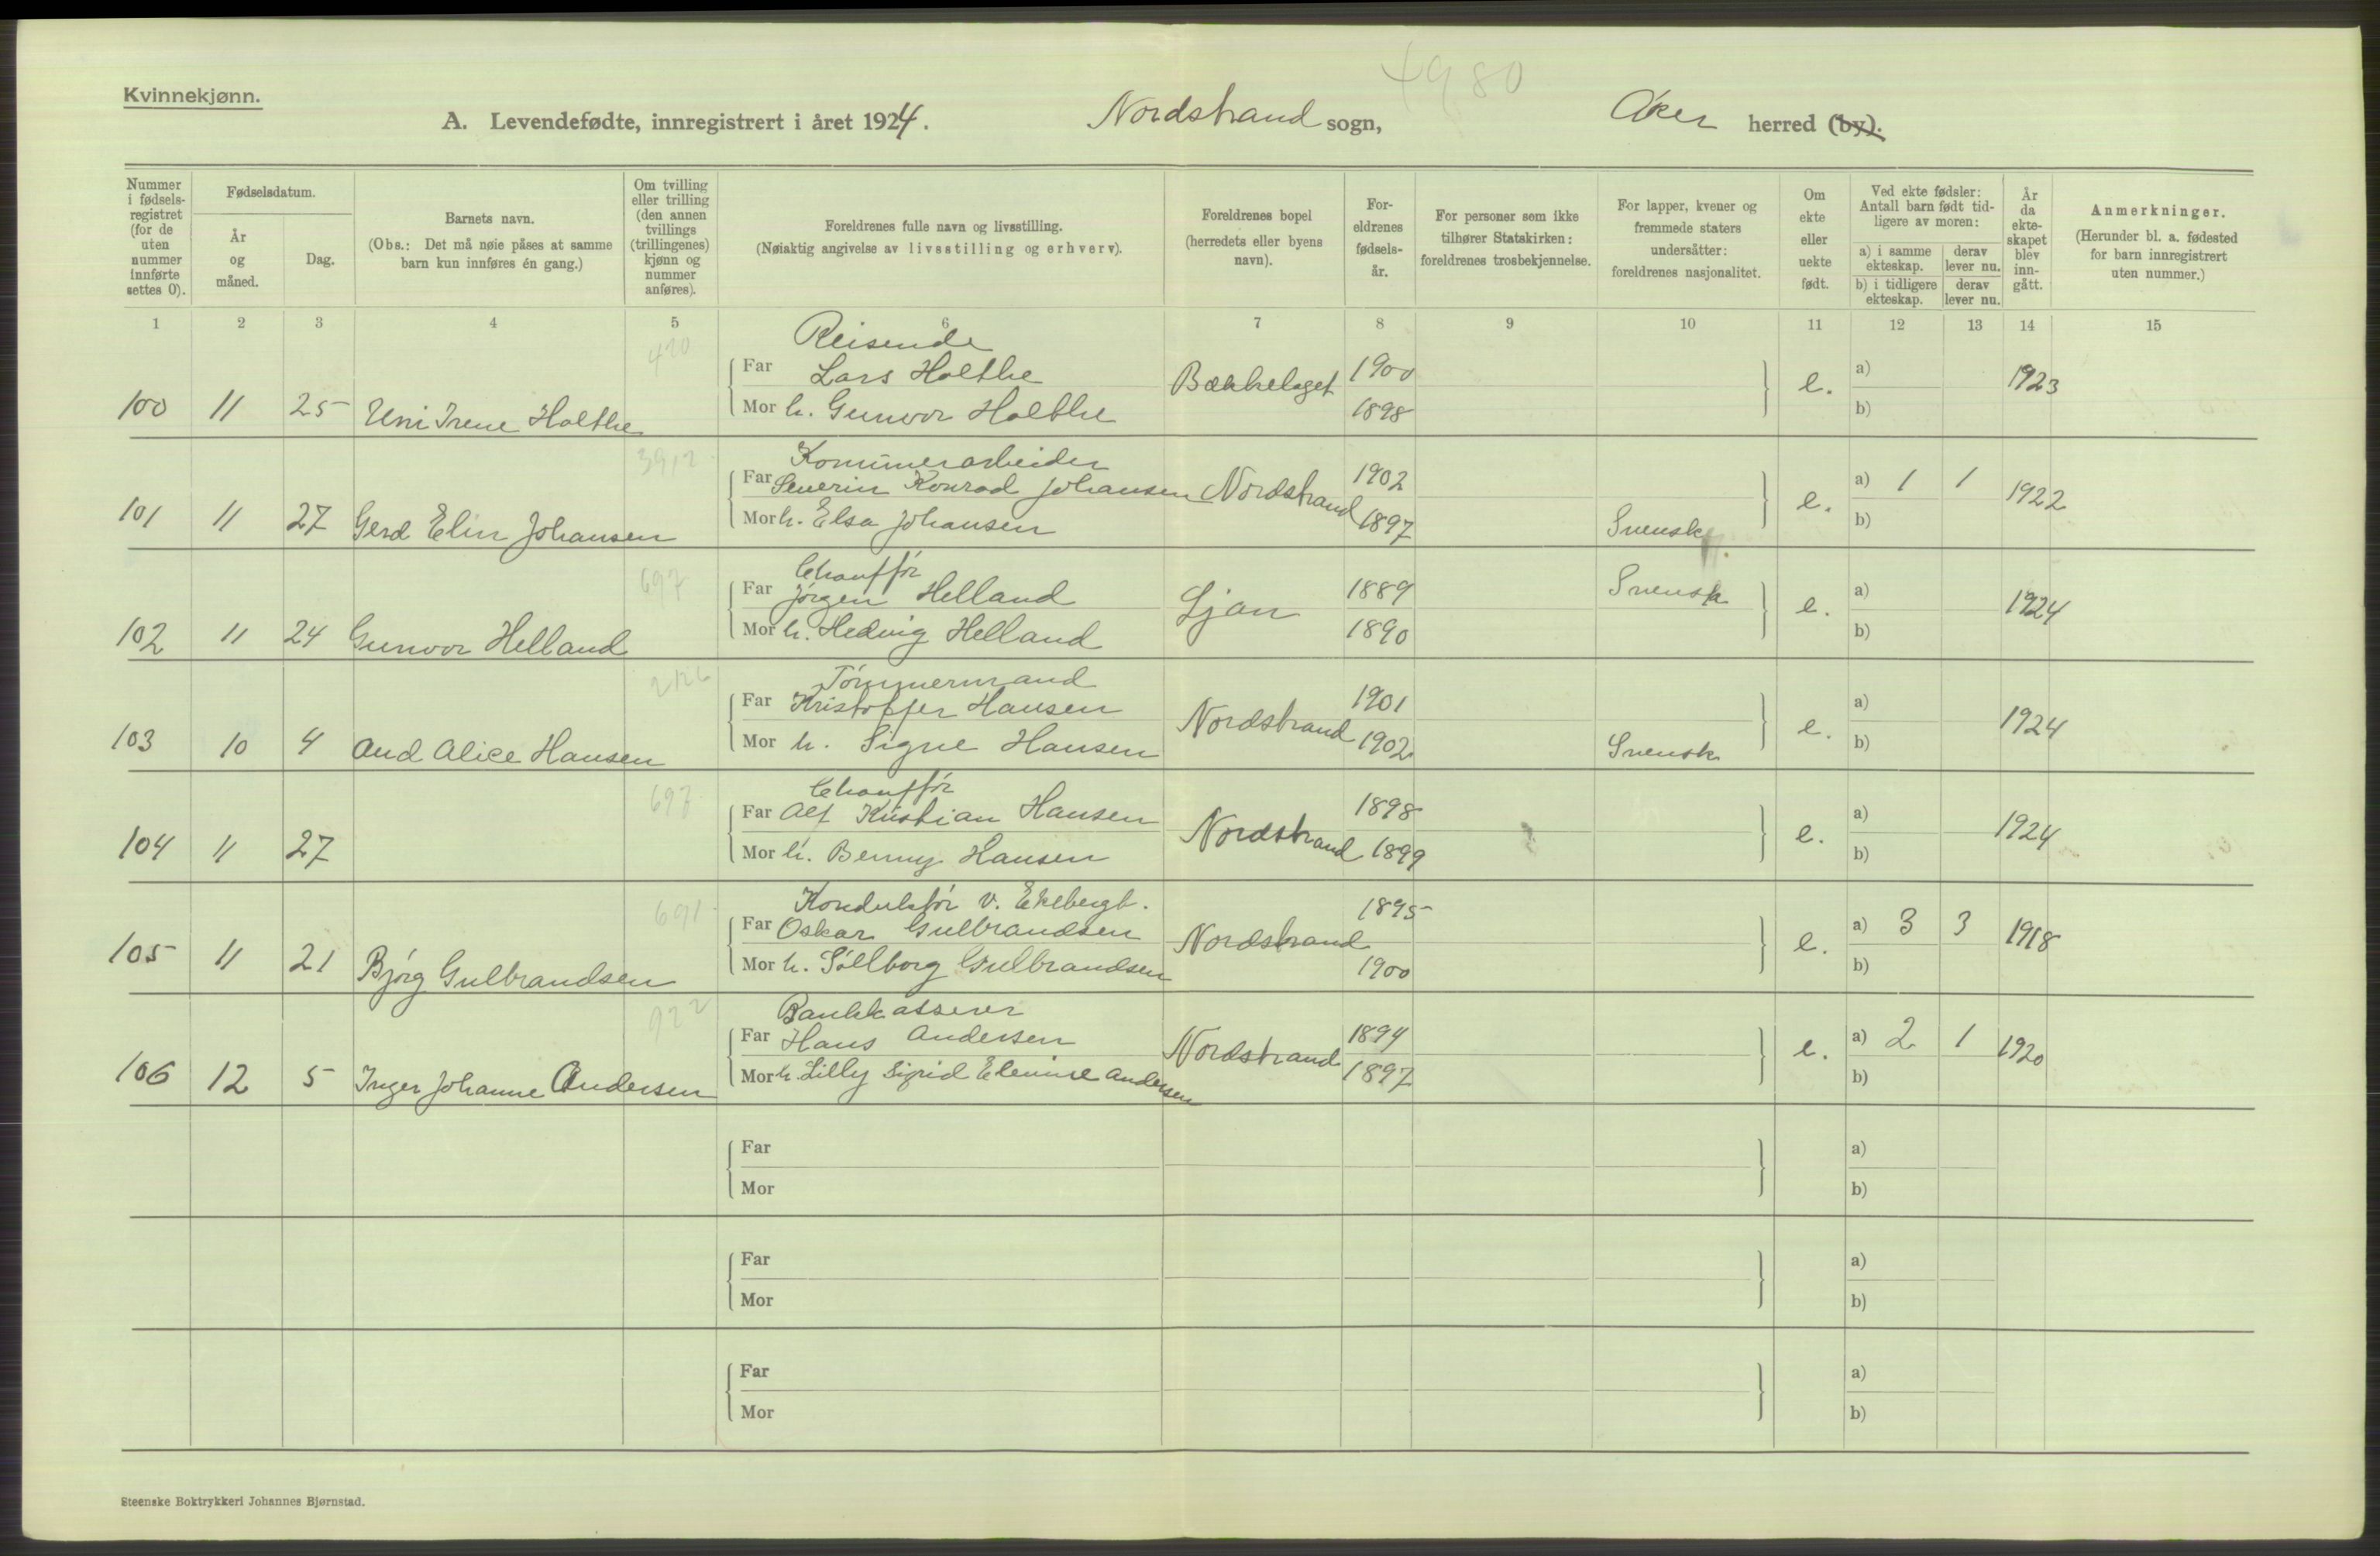 4980
Kvinnekjønn.
A. Levendefødte, innregistrert i året 1924. Nordstrand sogn, Aker herred (by).
Nummer i fødsels-registret (for de uten nummer innførte settes 0).
Fødselsdatum.
År og måned.
Dag.
Barnets navn.
(Obs.: Det må nøie påses at samme barn kun innføres én gang.)
Om tvilling eller trilling (den annen tvillings (trillingenes) kjønn og nummer anføres).
Foreldrenes fulle navn og livsstilling.
(Nøiaktig angivelse av livsstilling og erhverv).
Foreldrenes bopel (herredets eller byens navn).
For-eldrenes fødsels-år.
For personer som ikke tilhører Statskirken: foreldrenes trosbekjennelse.
For lapper, kvener og fremmede staters undersåtter: foreldrenes nasjonalitet.
Om ekte eller uekte født.
Ved ekte fødsler: Antall barn født tid-ligere av moren:
a) i samme ekteskap. derav lever nu.
b) i tidligere ekteskap. derav lever nu.
År da ekte-skapet blev inn-gått.
Anmerkninger.
(Herunder bl. a. fødested for barn innregistrert uten nummer.)
1 2 3 4 5 6 7 8 9 10 11 12 13 14 15
420 Reisende
Far Lars Holthe Bækkelaget 1900 e. a) 1923
100 11 25 Uni Irene Holthe Mor h. Gunvor Holthe 1898 b)
3912 Kommunearbeider
Far Severin Konrad Johansen Nordstrand 1902 e. a) 1 1 1922
101 11 27 Gerd Elin Johansen Mor h. Elsa Johansen 1897 Svensk b)
697 Chauffør
Far Jørgen Helland Ljan 1889 Svensk e. a) 1924
102 11 24 Gunvor Helland Mor h. Hedvig Helland 1890 b)
2126 Tømmermand
Far Kristoffer Hansen Nordstrand 1901 e. a) 1924
103 10 4 Aud Alice Hansen Mor h. Signe Hansen 1902 Svensk b)
697 Chauffør
Far Alf Kristian Hansen Nordstrand 1898 e. a) 1924
104 11 27 Mor h. Benny Hansen 1899 b)
691 Konduktør v. Ekebergb.
Far Oskar Gulbrandsen Nordstrand 1895 e. a) 3 3 1918
105 11 21 Bjørg Gulbrandsen Mor h. Sóllborg Gulbrandsen 1900 b)
922 Bankkasserer
Far Hans Andersen Nordstrand 1894 e. a) 2 1 1920
106 12 5 Inger Johanne Andersen Mor h. Lilly Sigrid Elenine Andersen 1897 b)
Far a)
Mor b)
Far a)
Mor b)
Far a)
Mor b)
Steenske Boktrykkeri Johannes Bjørnstad.